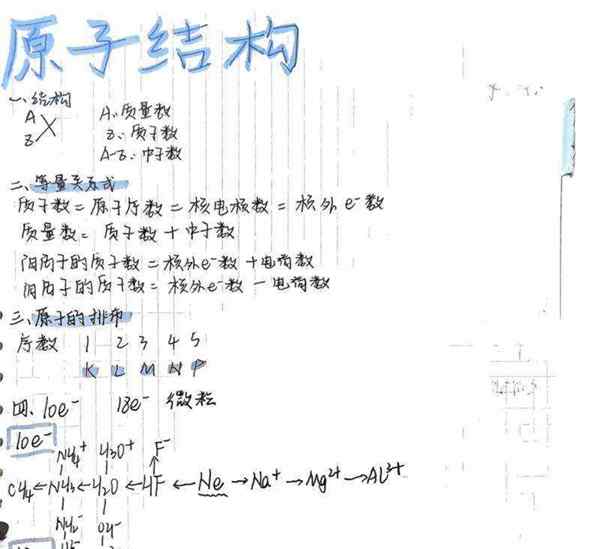 原子结构
一、结构
A A:质量数
X
Z Z:质子数
A-Z:中子数
二、等量关系式
质子数=原子序数=核电核数=核外e⁻数
质量数=质子数+中子数
阳离子的质子数=核外e⁻数+电荷数
阴离子的质子数=核外e⁻数-电荷数
三、原子的排布
序数 1 2 3 4 5
K L M N P
四、10e⁻ 18e⁻ 微粒
10e⁻
NH₄⁺ H₃O⁺ F⁻
CH₄←NH₃←H₂O←HF←Ne→Na⁺→Mg²⁺→Al³⁺
NH₂⁻ OH⁻